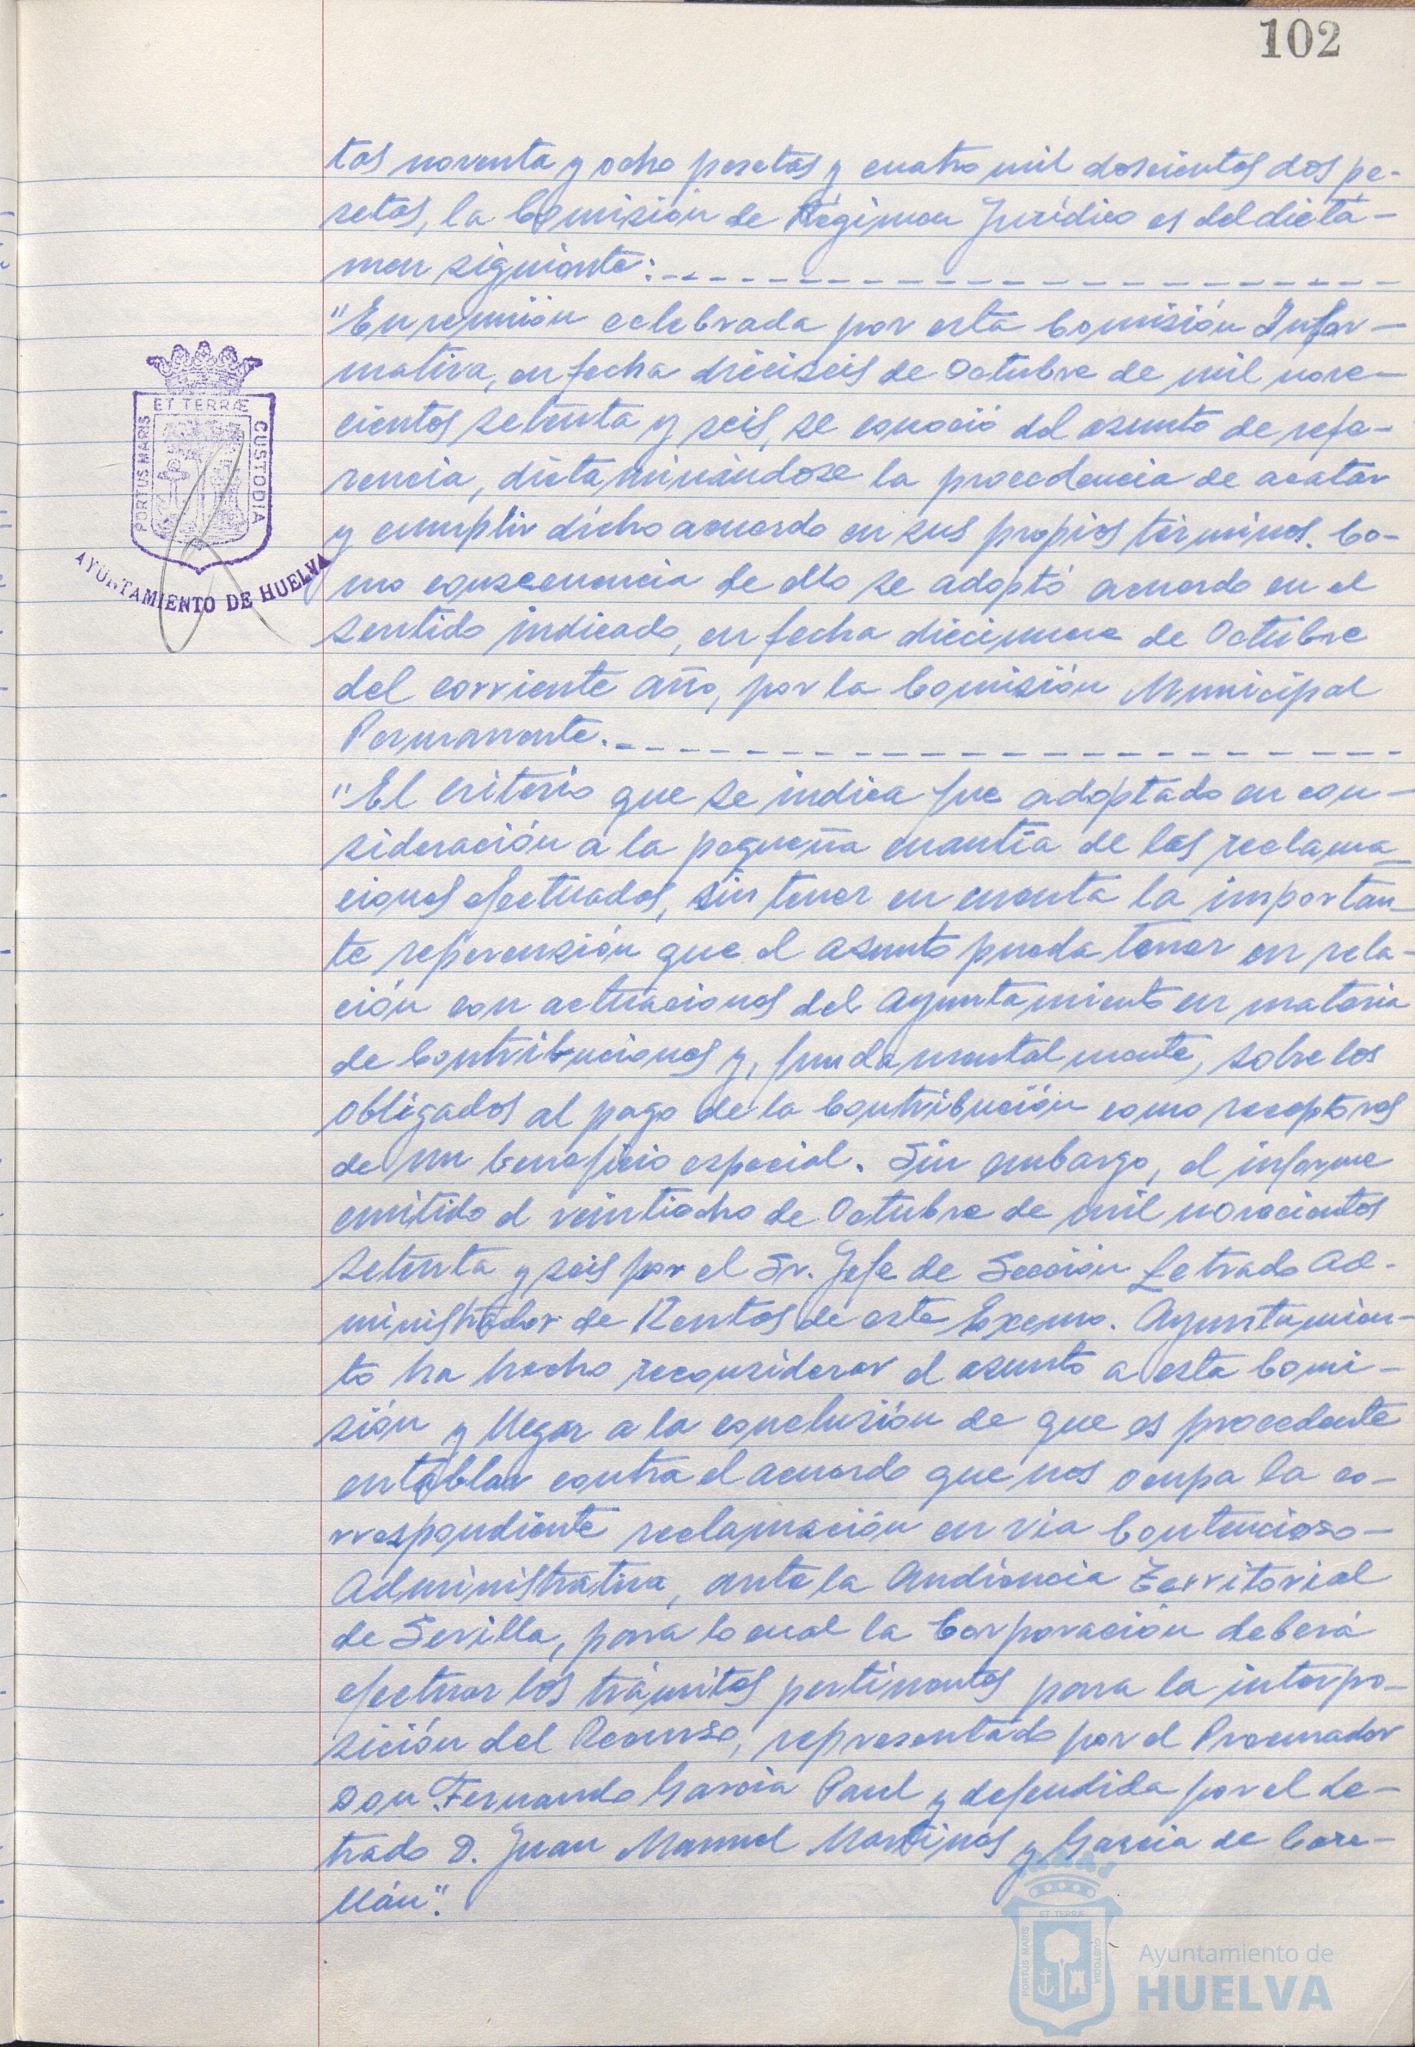 102
tas noventa y ocho pesetas y cuatro mil doscientas dos pe-
setas, la Comisión de Régimen Jurídico es del dicta-
men siguiente:
"En reunión celebrada por esta Comisión Infor-
mativa, en fecha dieciseis de Octubre de mil nove-
cientos setenta y seis, se conoció del asunto de refe-
rencia, dictaminándose la procedencia de acatar
y cumplir dicho acuerdo en sus propios términos. Co-
mo consecuencia de ello se adoptó acuerdo en el
sentido indicado, en fecha diecinueve de Octubre
del corriente año, por la Comisión Municipal
Permanente.
"El criterio que se indica fue adoptado en con-
sideración a la pequeña cuantía de las reclama-
ciones efectuadas, sin tener en cuenta la importan-
te repercusión que el asunto pueda tener en rela-
ción con actuaciones del Ayuntamiento en materia
de Contribuciones y, fundamentalmente, sobre los
obligados al pago de la Contribución como receptores
de un beneficio especial. Sin embargo, el informe
emitido el veintiocho de Octubre de mil novecientos
setenta y seis por el Sr. Jefe de Sección Letrado Ad-
ministrador de Rentas de este Excmo. Ayuntamien-
to ha hecho reconsiderar el asunto a esta Comi-
sión y llegar a la conclusión de que es procedente
entablar contra el acuerdo que nos ocupa la co-
rrespondiente reclamación en via Contencioso-
Administrativa, ante la Audiencia Territorial
de Sevilla, para lo cual la Corporación deberá
efectuar los trámites pertinentes para la interpo-
sición del Recurso, representado por el Procurador
Don Fernando García Paul y defendida por el Le-
trado D. Juan Manuel Martínes y García de Care-
llán".
ET TERRÆ
PORTUS MARIS
CUSTODIA
AYUNTAMIENTO DE HUELVA
ET TERRÆ
PORTUS MARIS
CUSTODIA
Ayuntamiento de
HUELVA